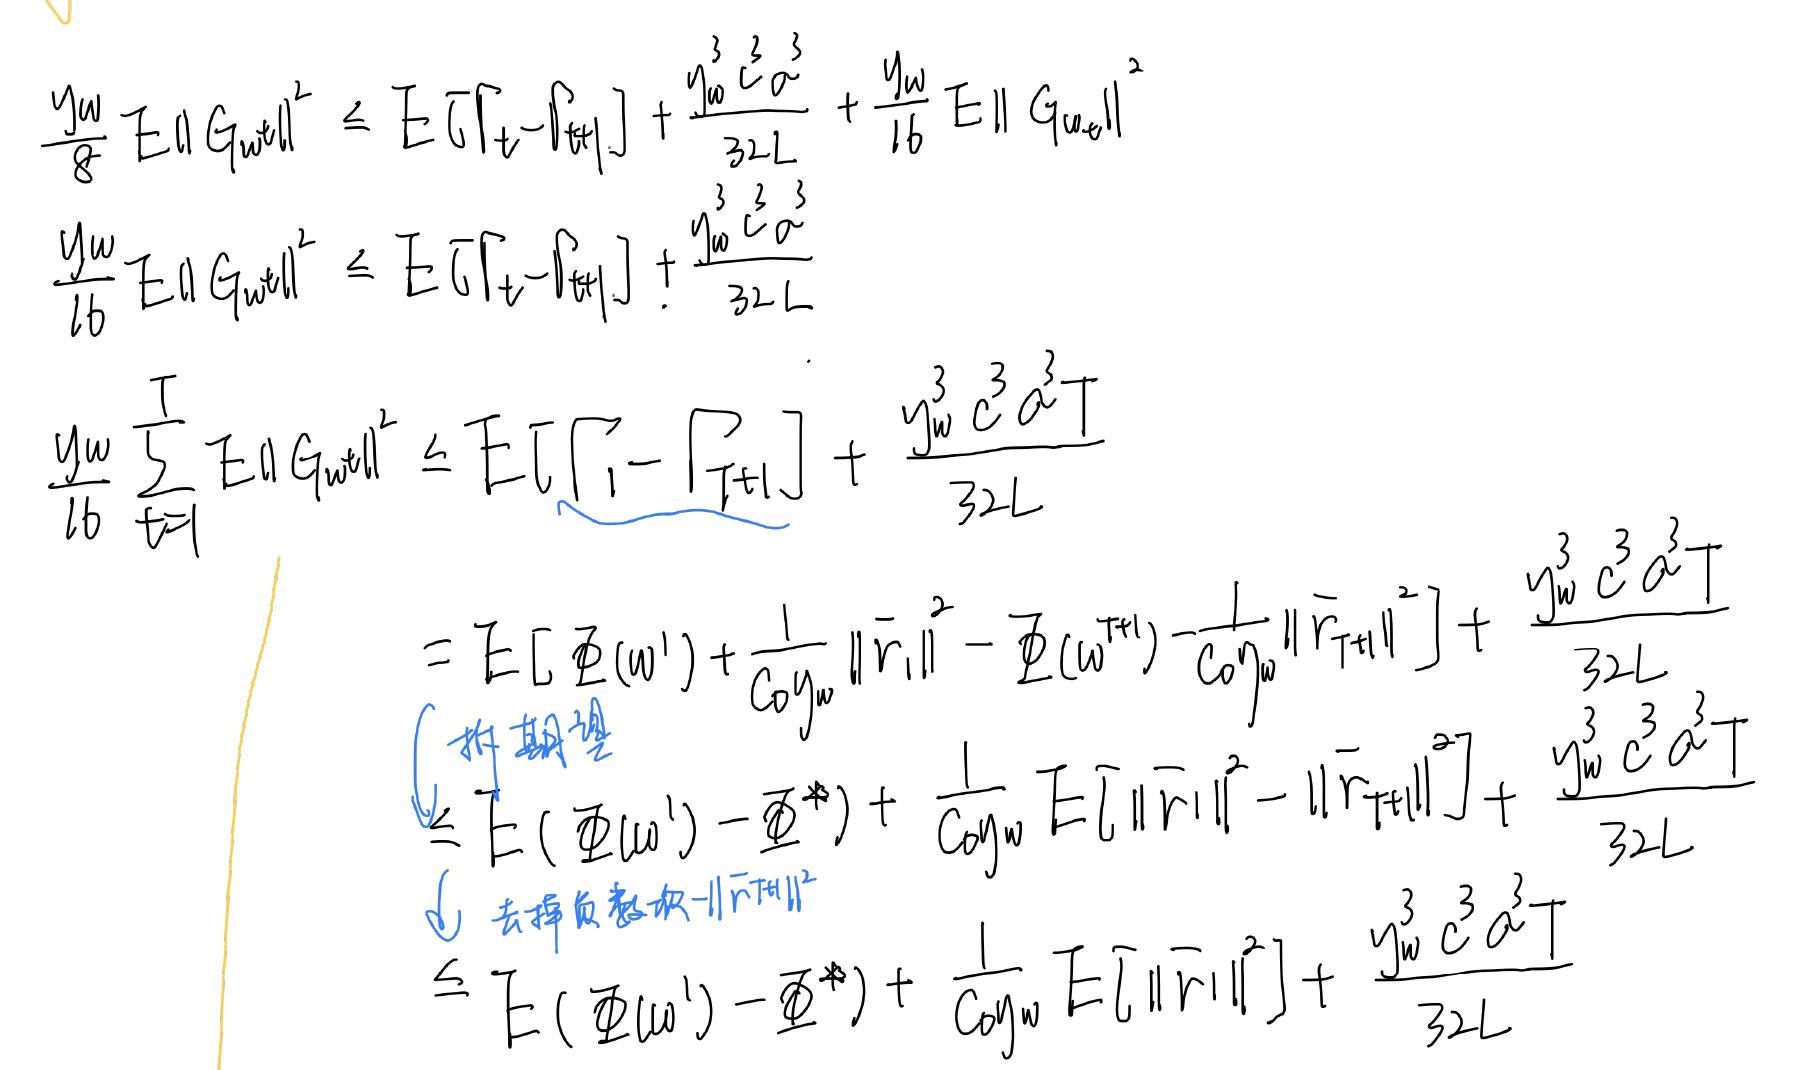 $\frac{y_w}{8} E\|G_{w^t}\|^2 \le E[\Gamma_t - \Gamma_{t+1}] + \frac{y_w^3 c^3 a^3}{32L} + \frac{y_w}{16} E\|G_{w_t}\|^2$
$\frac{y_w}{16} E\|G_{w^t}\|^2 \le E[\Gamma_t - \Gamma_{t+1}] + \frac{y_w^3 c^3 a^3}{32L}$
$\frac{y_w}{16} \sum_{t=1}^{T} E\|G_{w^t}\|^2 \le E[\Gamma_1 - \Gamma_{T+1}] + \frac{y_w^3 c^3 a^3 T}{32L}$
$= E[\Phi(w^1) + \frac{1}{c_0 y_w}\|\bar{r}_1\|^2 - \Phi(w^{T+1}) - \frac{1}{c_0 y_w}\|\bar{r}_{T+1}\|^2] + \frac{y_w^3 c^3 a^3 T}{32L}$
拆期望
$\le E(\Phi(w^1) - \Phi^*) + \frac{1}{c_0 y_w} E[\|\bar{r}_1\|^2 - \|\bar{r}_{T+1}\|^2] + \frac{y_w^3 c^3 a^3 T}{32L}$
去掉负数项 $-\|\bar{r}_{T+1}\|^2$
$\le E(\Phi(w^1) - \Phi^*) + \frac{1}{c_0 y_w} E[\|\bar{r}_1\|^2] + \frac{y_w^3 c^3 a^3 T}{32L}$